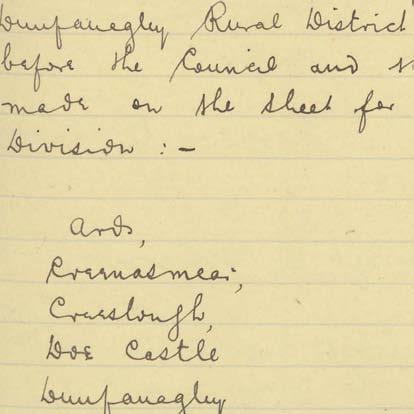 Dunfanaghy Rural District
before the Council and
made on the sheet for
Division :-
Ards,
Creenasmear,
Creeslough,
Doe Castle
Dunfanaghy